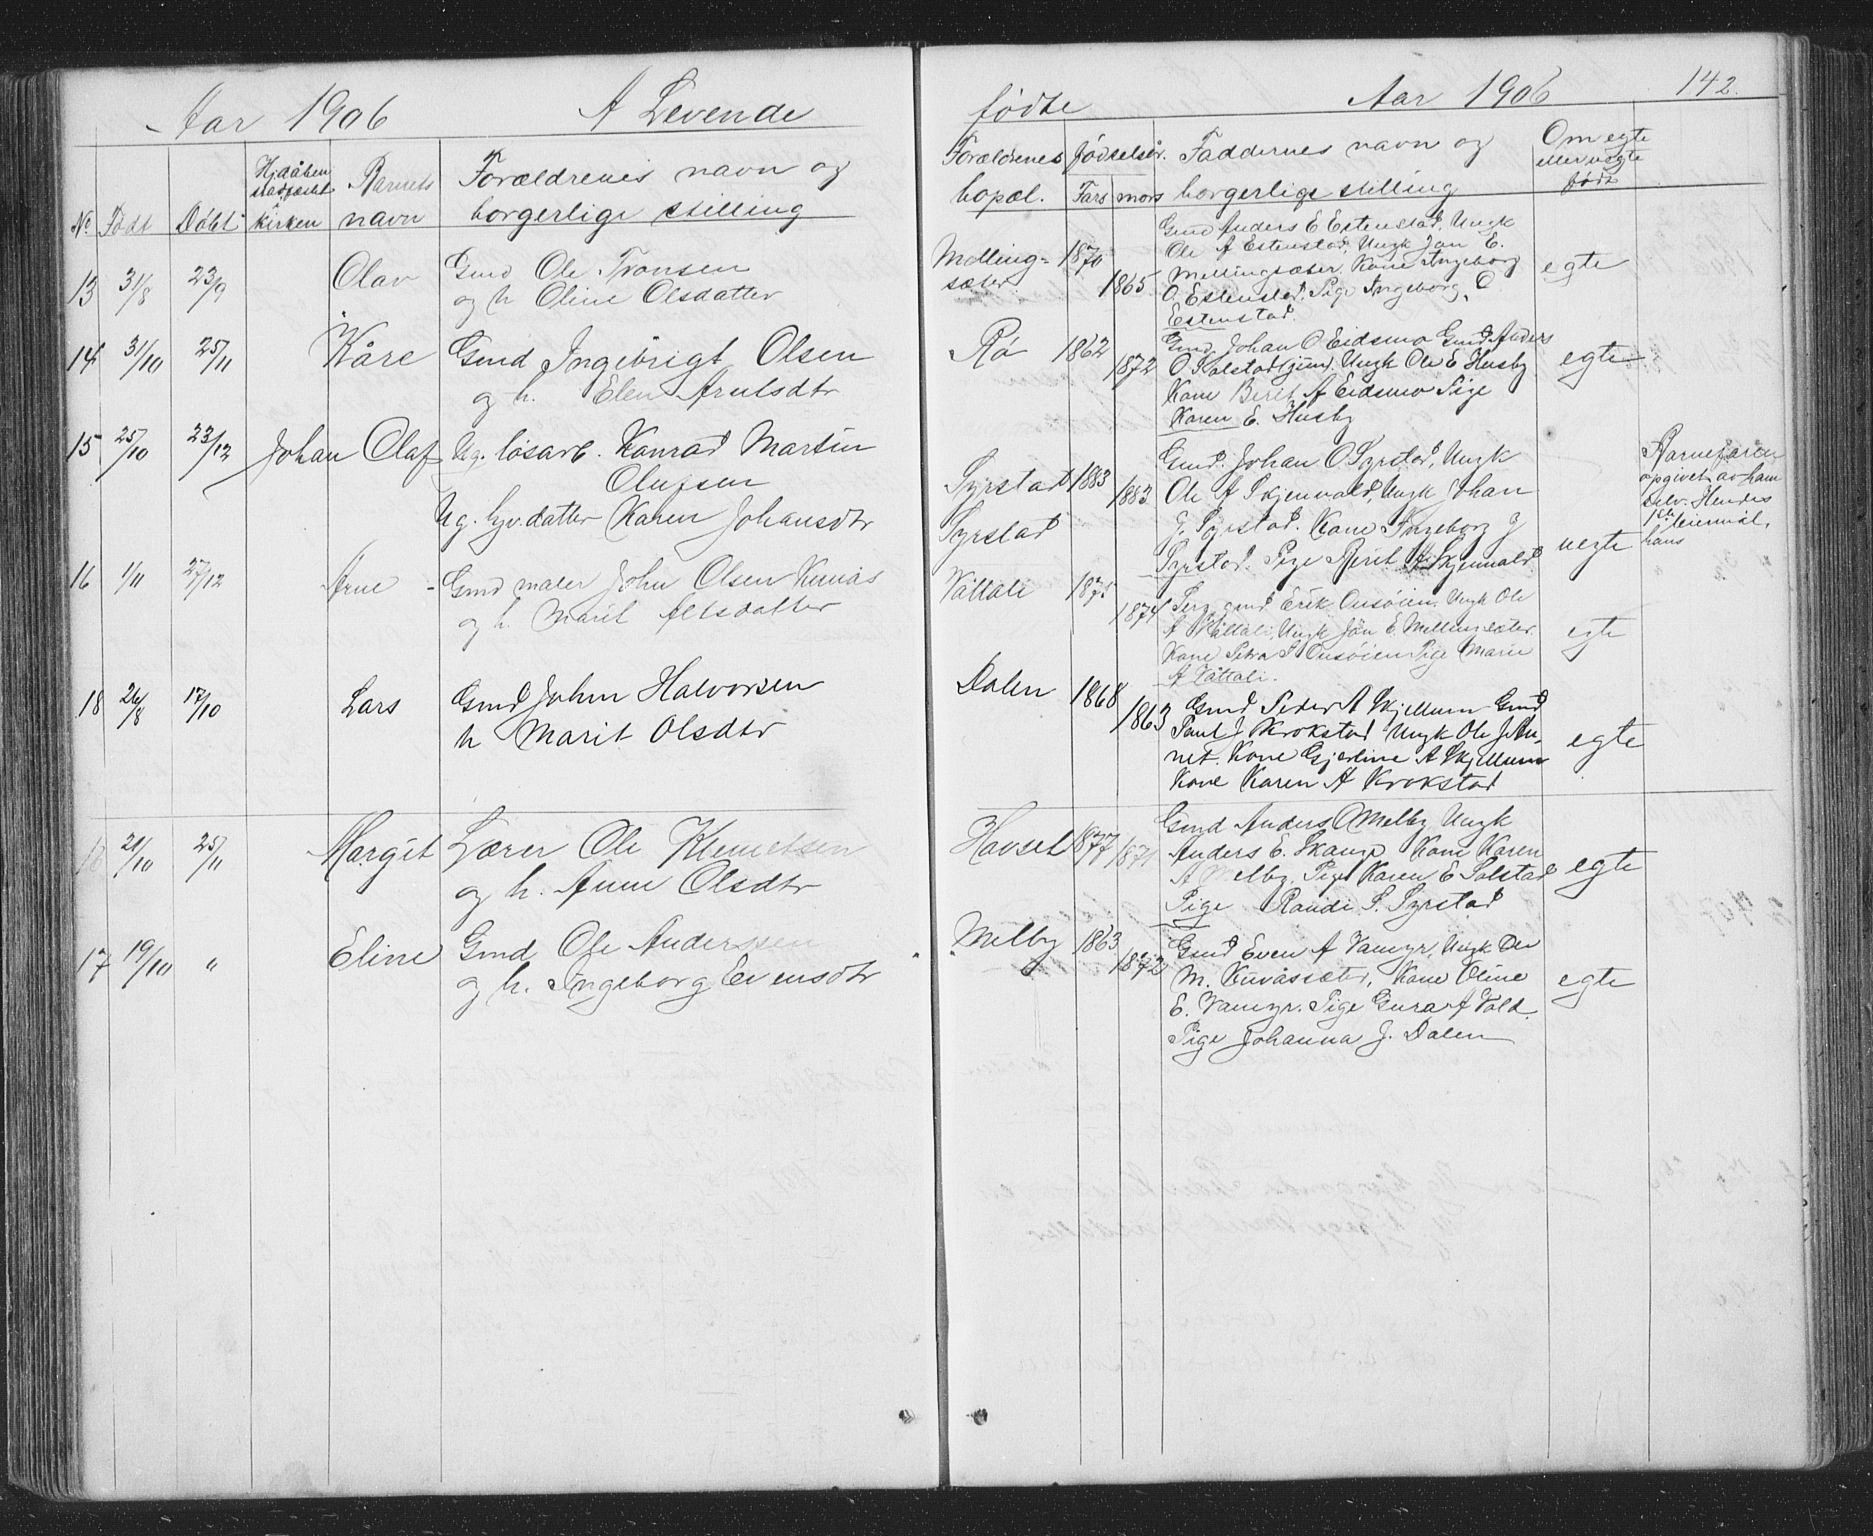 Aar 1906 A Levende
No Født Døbt Hjdåben stadfæst i kirken Barnets navn Forældrenes navn og borgerlige stilling
13 31/8 23/9 Olav Gmd Ole Tronsen
og h Oline Olsdatter
14 31/10 25/11 Kåre Gmd Ingebrigt Olsen
og h. Elen Arntsdtr
15 25/10 23/12 Johan Olaf Ug. løsarb. Konrad Martin
Olufsen
Ug. gjv.datter Karen Johansdtr
16 1/11 27/12 Arne Gmd maler John Olsen
og h. Marit
18 26/8 17/10 Lars Gmd John Halvorsen
h Marit Olsdtr
18 21/10 25/11 Margit Lærer Ole Klemetsen
og h. Anne Olsdtr
17 19/10 " Eline Gmd Ole Anderssen
og h. Ingeborg Evensdtr
fødte Aar 1906 142.
Forældrenes bopæl. Fødselsår. Fars mors Faddernes navn og borgerlige stilling Om egte eller uegte født
Melling-
sæter 1870 1865 Gmd Anders E Estenstad, Ungk
Ole A Estenstad, Ungk Jon E.
Mellingsæter, Kone Ingeborg
O. Estenstad. Pige Ingeborg O
Estenstad. egte
Rø 1862 1872 Gmd Johan O Eidsmo Gmd Anders
O Ungk Ole E Husby
Kone Berit A Eidsmo Pige
Karen E. Husby egte
Syrstad 1883 1883 Gmd. Johan O. Syrstad, Ungk
Syrstad Ole A Skjenvald, Ungk Johan
J. Syrstad. Kone Ingeborg J
Syrstad. Pige Berit A Skjenvald uegte
Barnefaren
opgivet av ham
selv. Hendes
1ste leiermål,
hans
Våttåli 1875 1874 Serg. gmd Erik Onsøien, Ungk Ole
A Våttåli, Ungk Jon E. Mellingsæter
Kone Petra S Onsøien Pige Marie
A Våttåli. egte
Dalen 1868 1863 Gmd Peder A Skjellum Gmd
Paul J Krokstad Ungk Ole J. An-
net. Kone Gjertine A Skjellum
Kone Karen A Krokstad egte
Havset 1877 1871 Gmd Anders O Melby Ungk
Anders E. Kone Karen
A Melby, Pige Karen E Solstad
Pige Randi S. Syrstad egte
Melby 1863 1872 Gmd Even A Vamyr, Ungk Ole
M. Kuvåssæter, Kone Oline
E. Vamyr. Pige Gura A Vold.
Pige Johanna J. Dalen egte